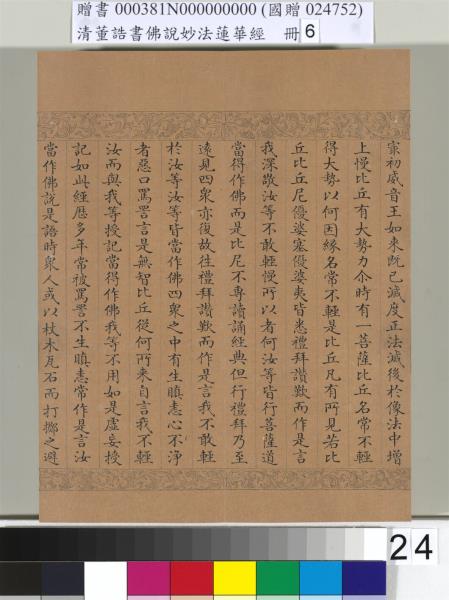 贈書 000381N000000000 (國贈 024752)
清董誥書佛說妙法蓮華經 冊 6
初威音王如來既已滅度正法滅後於像法中增
上慢比丘有大勢力尒時有一菩薩比丘名常不輕
得大勢以何因緣名常不輕是比丘凡有所見若比
丘比丘尼優婆塞優婆夷皆悉禮拜讚歎而作是言
我深敬汝等不敢輕慢所以者何汝等皆行菩薩道
當得作佛而是比丘不專讀誦經典但行禮拜乃至
遠見四衆亦復故往禮拜讚歎而作是言我不敢輕
於汝等汝等皆當作佛四衆之中有生瞋恚心不淨
者惡口罵詈言是無智比丘從何所來自言我不輕
汝而與我等授記當得作佛我等不用如是虛妄授
記如此經歷多年常被罵詈不生瞋恚常作是言汝
當作佛說是語時衆人或以杖木瓦石而打擲之避
24